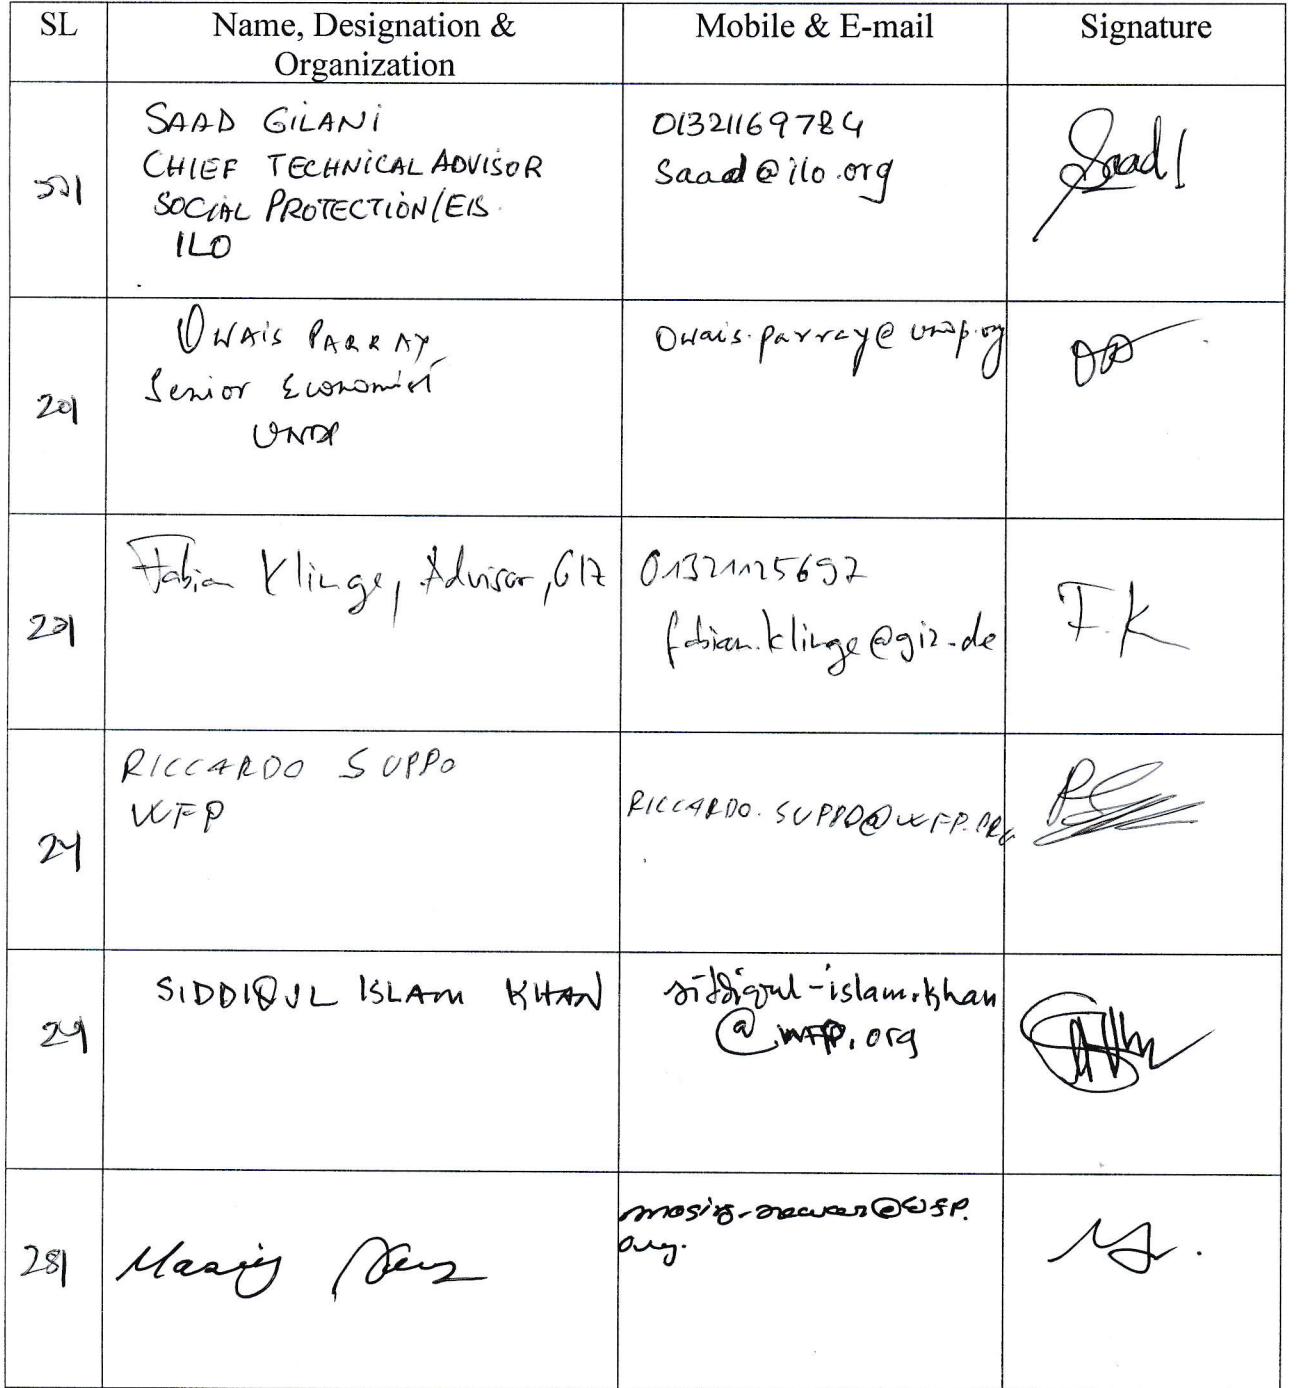 SL
Name, Designation &
Organization
Mobile & E-mail
Signature
SAAD GILANI
CHIEF TECHNICAL ADVISOR
SOCIAL PROTECTION/EIS
ILO
01321169784
Saad@ilo.org
Saad
OWAIS PARRAY,
Senior Economist
UNDP
Owais.parray@undp.org
Fabian Klinge, Advisor, GIZ
01321125692
fabian.klinge@giz.de
F.K
RICCARDO SUPPO
WFP
RICCARDO.SUPPO@WFP.ORG
SIDDIQUL ISLAM KHAN
siddiqul-islam.khan
@wfp.org
@WFP.
org.